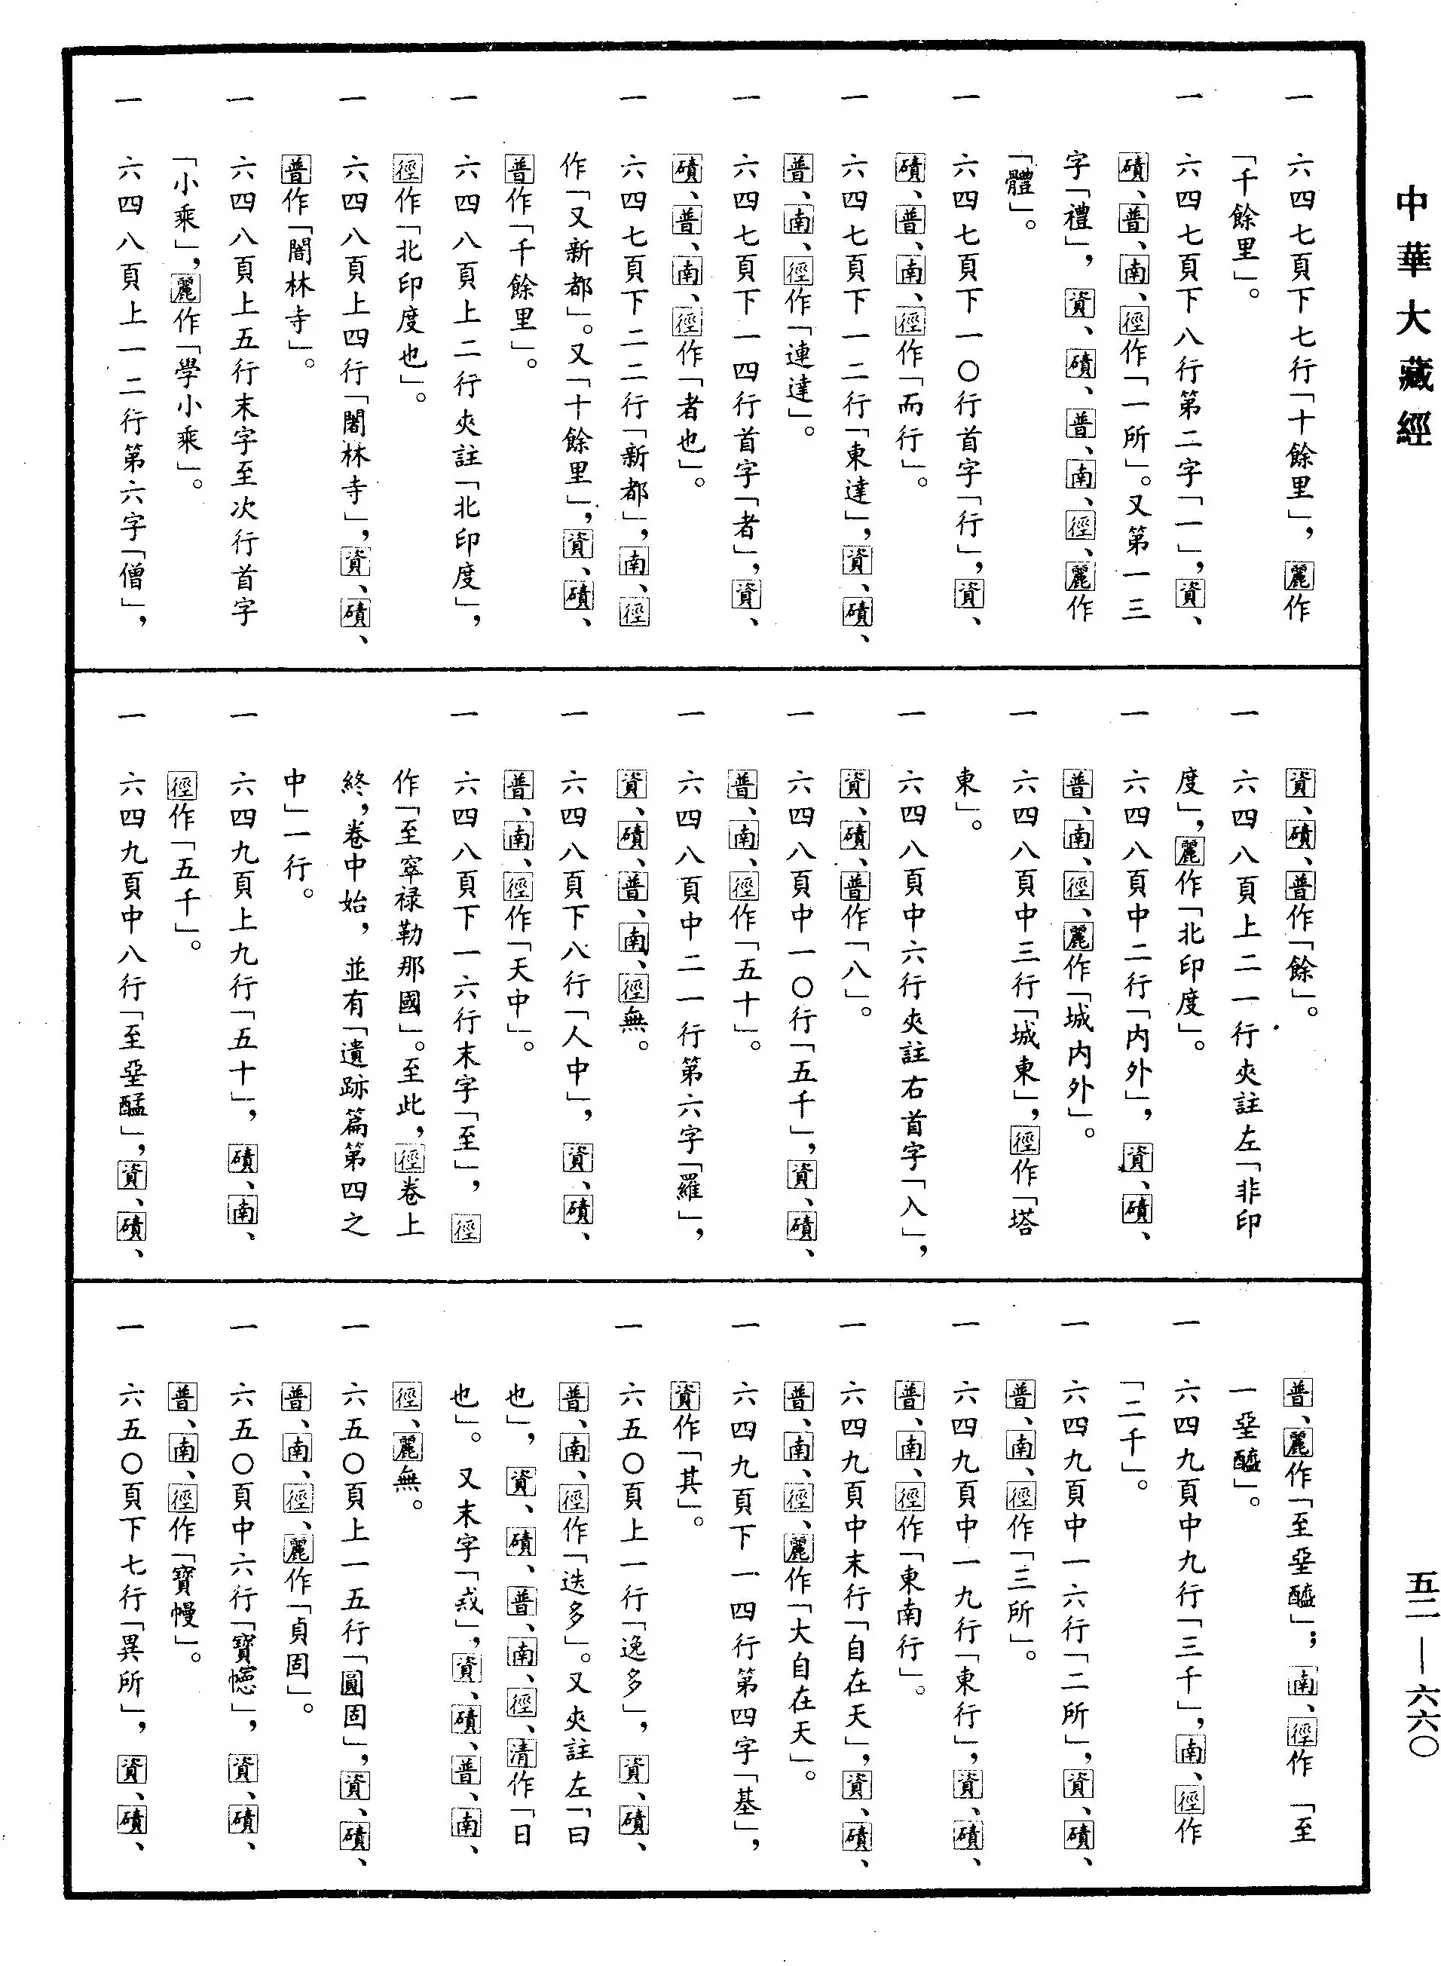 中華大藏經
一 六四七頁下七行「十餘里」，麗作
「千餘里」。
一 六四七頁下八行第二字「一」，資、
磧、普、南、徑作「一所」。又第一三
字「禮」，資、磧、普、南、徑、麗作
「體」。
一 六四七頁下一〇行首字「行」，資、
磧、普、南、徑作「而行」。
一 六四七頁下一二行「東達」，資、磧、
普、南、徑作「連達」。
一 六四七頁下一四行首字「者」，資、
磧、普、南、徑作「者也」。
一 六四七頁下二二行「新都」，南、徑
作「又新都」。又「十餘里」，資、磧、
普作「千餘里」。
一 六四八頁上二行夾註「北印度」，
徑作「北印度也」。
一 六四八頁上四行「闍林寺」，資、磧、
普作「闇林寺」。
一 六四八頁上五行末字至次行首字
「小乘」，麗作「學小乘」。
一 六四八頁上一二行第六字「僧」，
資、磧、普作「餘」。
一 六四八頁上二一行夾註左「非印
度」，麗作「北印度」。
一 六四八頁中二行「内外」，資、磧、
普、南、徑、麗作「城内外」。
一 六四八頁中三行「城東」，徑作「塔
東」。
一 六四八頁中六行夾註右首字「入」，
資、磧、普作「八」。
一 六四八頁中一〇行「五千」，資、磧、
普、南、徑作「五十」。
一 六四八頁中二一行第六字「羅」，
資、磧、普、南、徑無。
一 六四八頁下八行「人中」，資、磧、
普、南、徑作「天中」。
一 六四八頁下一六行末字「至」，徑
作「至窣禄勒那國」。至此，徑卷上
終，卷中始，並有「遺跡篇第四之
中」一行。
一 六四九頁上九行「五十」，磧、南、
徑作「五千」。
一 六四九頁中八行「至堊醯」，資、磧、
普、麗作「至堊醯」；南、徑作「至
一堊醯」。
一 六四九頁中九行「三千」，南、徑作
「二千」。
一 六四九頁中一六行「二所」，資、磧、
普、南、徑作「三所」。
一 六四九頁中一九行「東行」，資、磧、
普、南、徑作「東南行」。
一 六四九頁中末行「自在天」，資、磧、
普、南、徑、麗作「大自在天」。
一 六四九頁下一四行第四字「基」，
資作「其」。
一 六五〇頁上一行「逸多」，資、磧、
普、南、徑作「迭多」。又夾註左「曰
也」，資、磧、普、南、徑、清作「日
也」。又末字「戎」，資、磧、普、南、
徑、麗無。
一 六五〇頁上一五行「圓固」，資、磧、
普、南、徑、麗作「貞固」。
一 六五〇頁中六行「寶幰」，資、磧、
普、南、徑作「寶幔」。
一 六五〇頁下七行「異所」，資、磧、
五二—六六〇